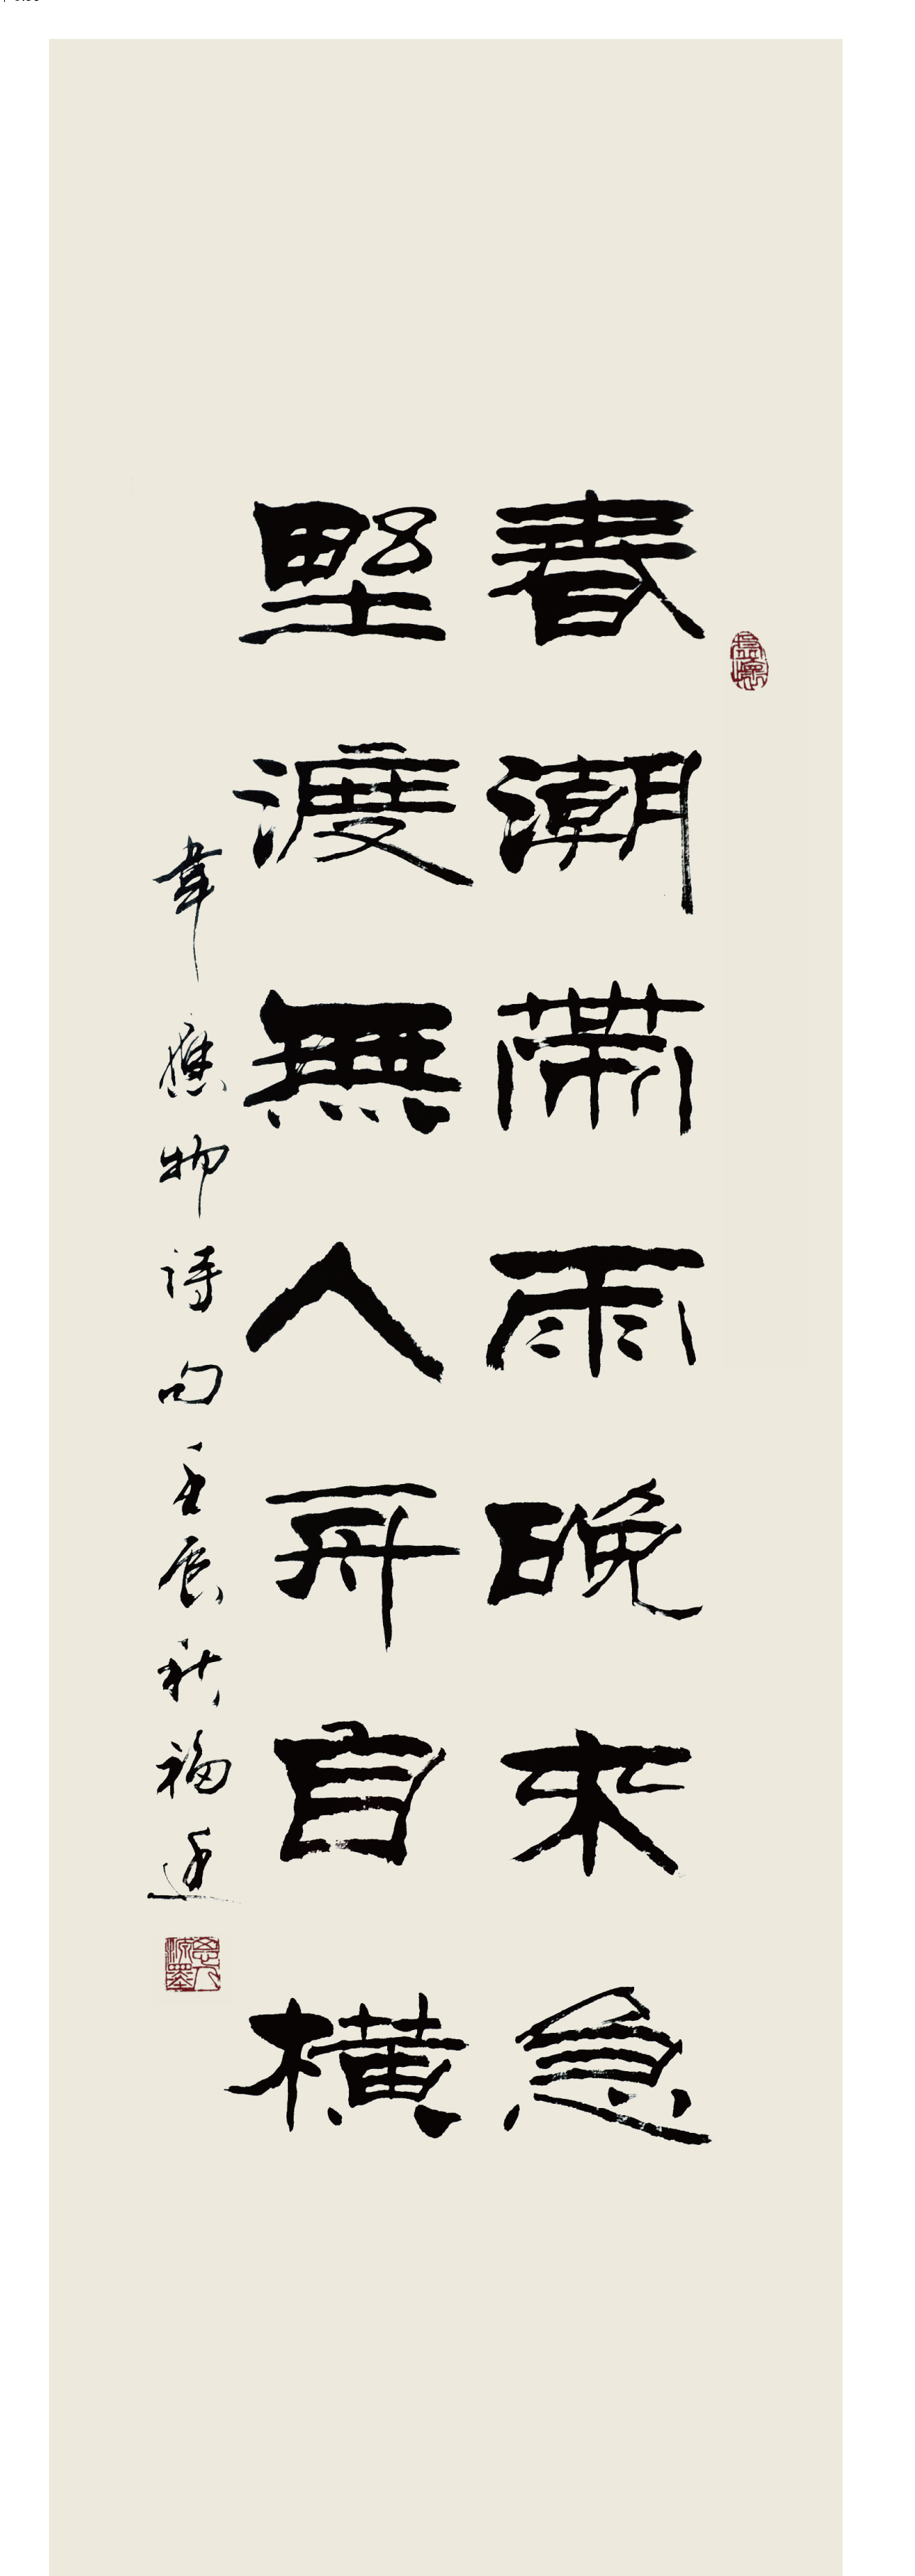 春潮帶雨晚來急
野渡無人舟自橫
韋應物詩句壬辰秋福